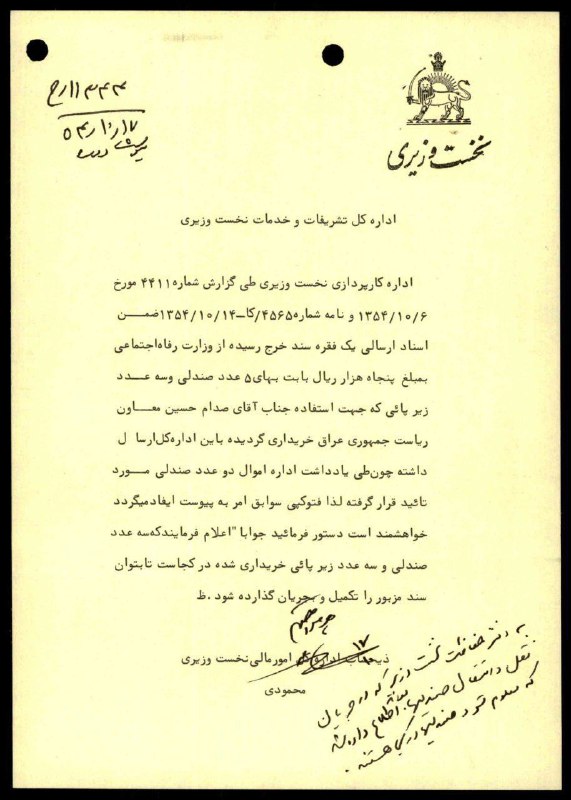 نخست وزیری
۱۱۳۴۴ ر ح
۵۴ ر ۱۰ ر ۱۷
اداره کل تشریفات و خدمات نخست وزیری
اداره کارپردازی نخست وزیری طی گزارش شماره ۴۴۱۱ مورخ
۱۳۵۴/۱۰/۶ و نامه شماره ۴۵۶۵/کا-۱۳۵۴/۱۰/۱۴ ضمن
اسناد ارسالی یک فقره سند خرج رسیده از وزارت رفاه اجتماعی
بمبلغ پنجاه هزار ریال بابت بهای ۵ عدد صندلی وسه عدد
زیر پائی که جهت استفاده جناب آقای صدام حسین معاون
ریاست جمهوری عراق خریداری گردیده باین اداره کل ارسال
داشته چون طی یادداشت اداره اموال دو عدد صندلی مورد
تائید قرار گرفته لذا فتوکپی سوابق امر به پیوست ایفاد میگردد
خواهشمند است دستور فرمائید جوابا" اعلام فرمایند که سه عدد
صندلی و سه عدد زیر پائی خریداری شده در کجاست تا بتوان
سند مزبور را تکمیل و بجریان گذارده شود . ظ
ذیحساب اداره کل امور مالی نخست وزیری
محمودی
۱۷/۱۰
به دفتر حفاظت نخست وزیری که در جریان
نقل و انتقال صندلیها اطلاع داده شد
که معلوم شود صندلیها در کجا هستند .